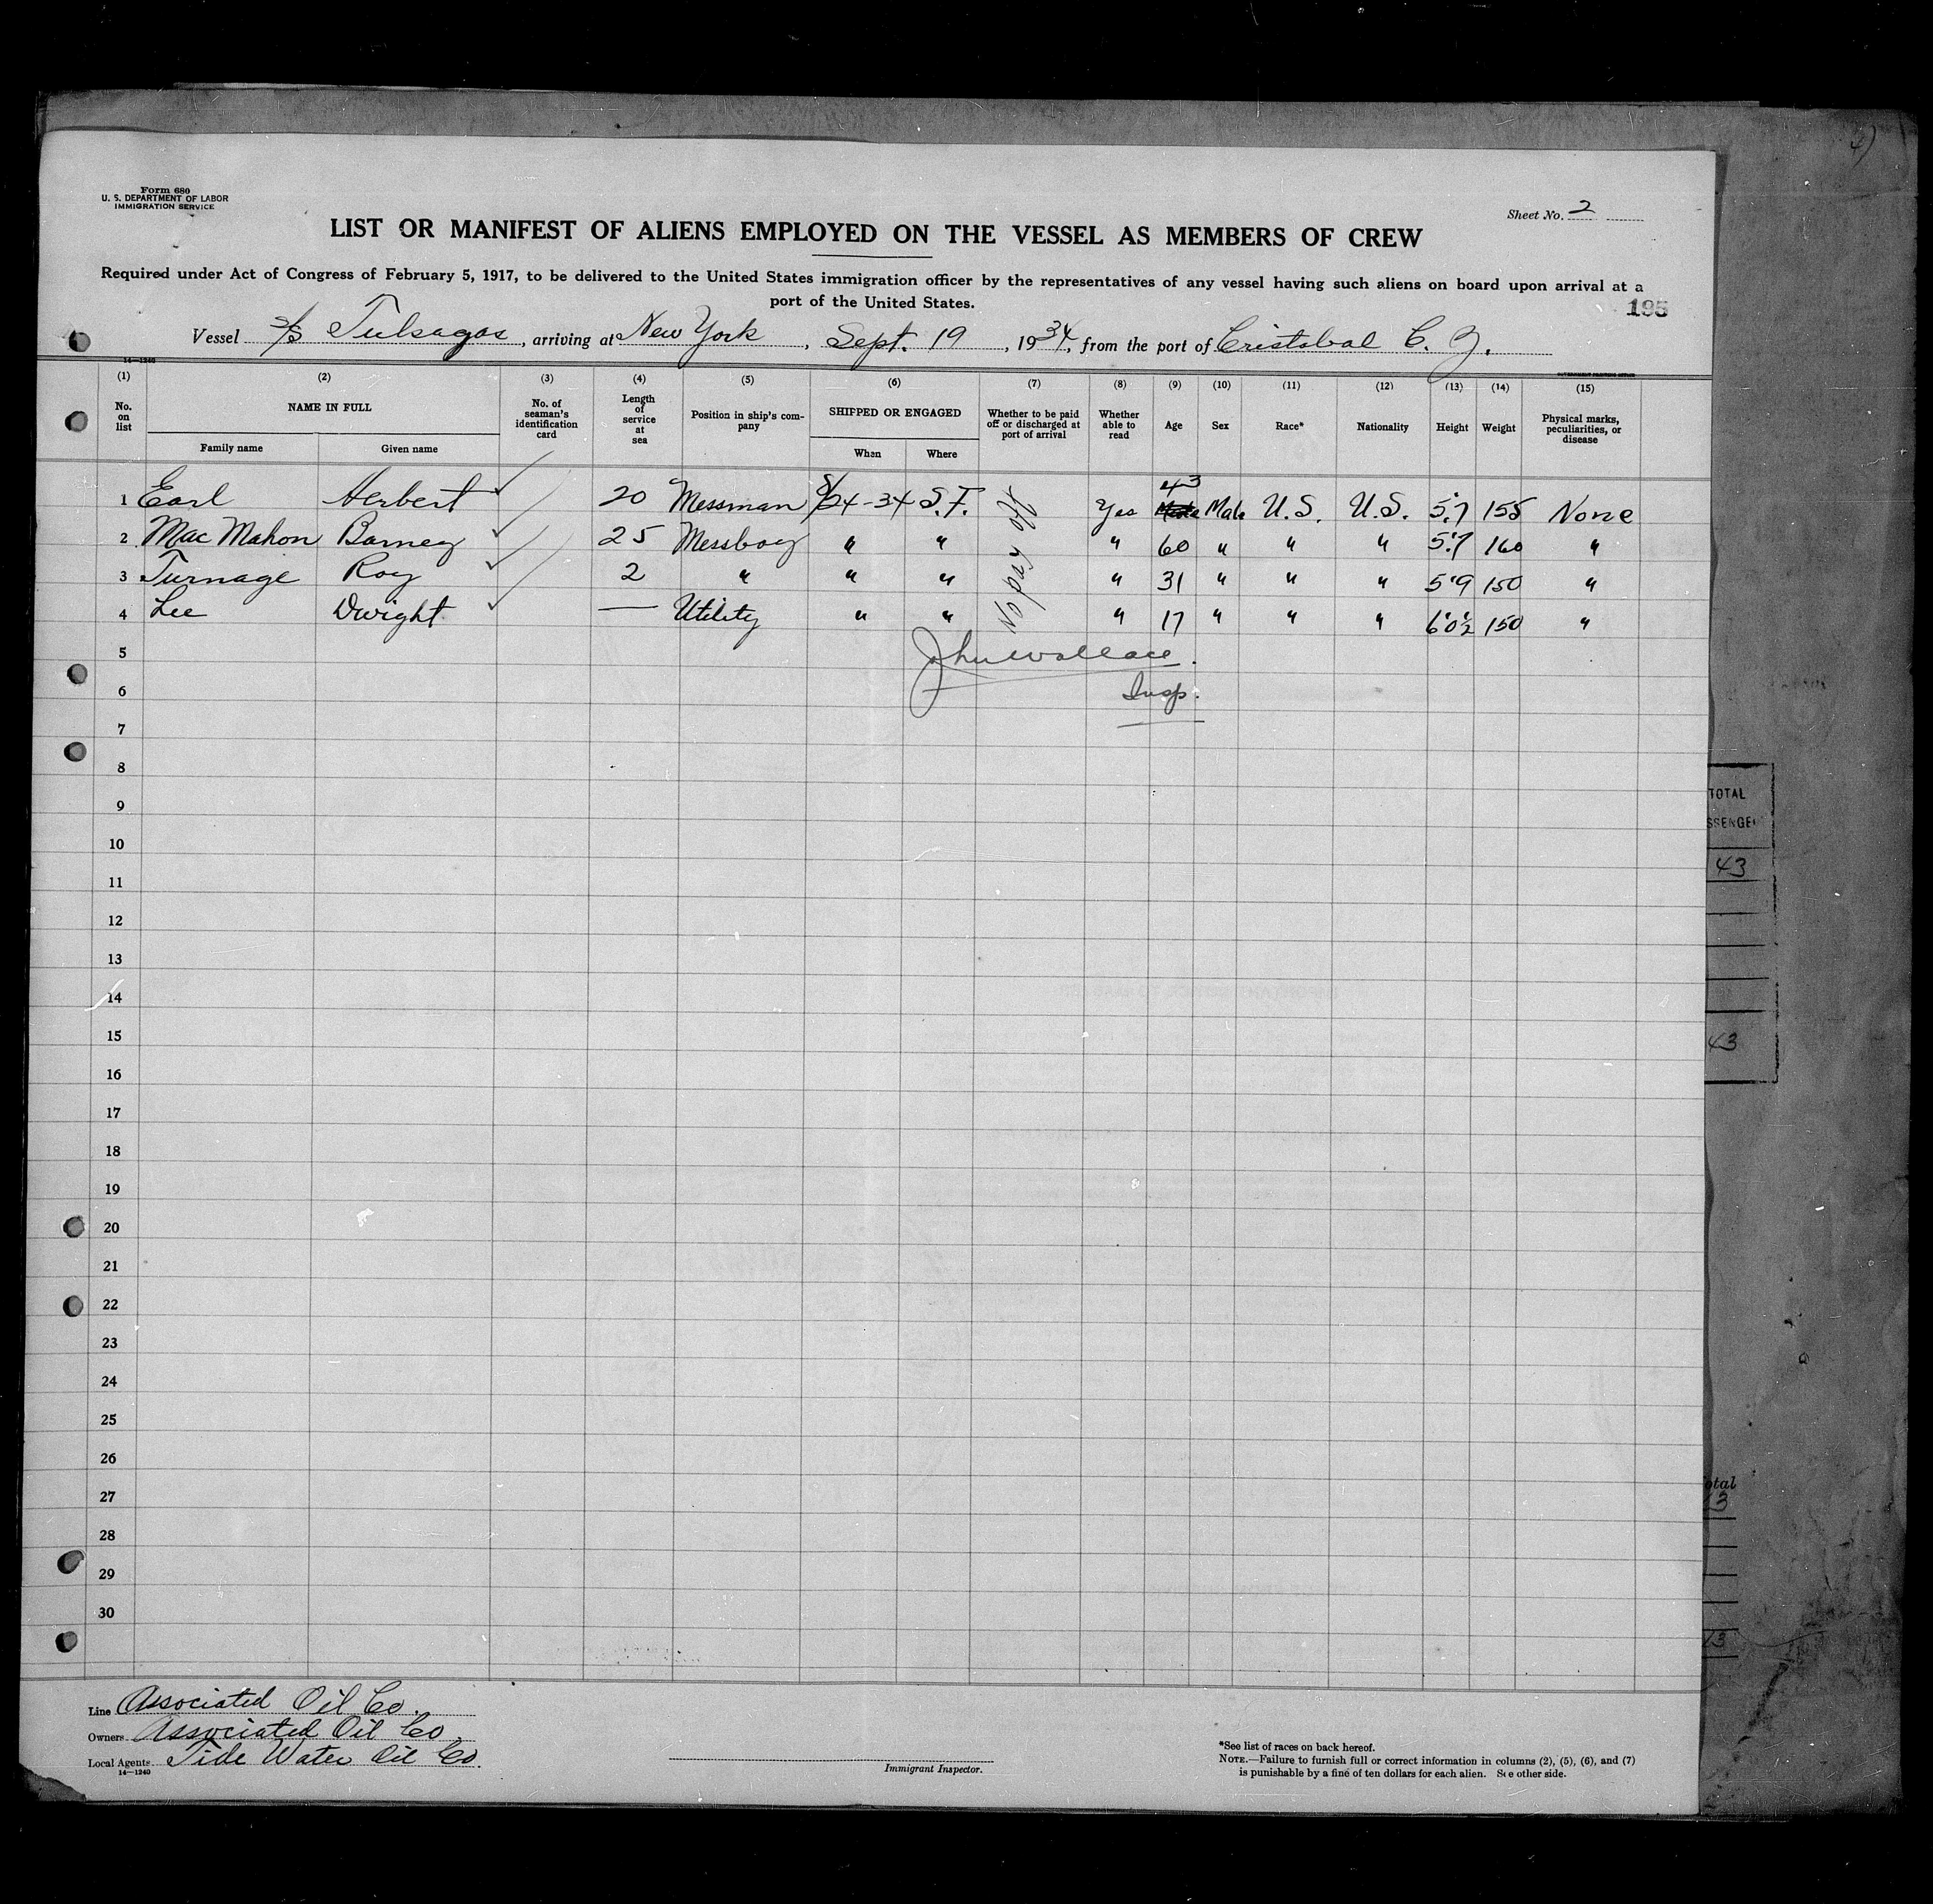 Form 680
U. S. DEPARTMENT OF LABOR
IMMIGRATION SERVICE
Sheet No. 2
LIST OR MANIFEST OF ALIENS EMPLOYED ON THE VESSEL AS MEMBERS OF CREW
Required under Act of Congress of February 5, 1917, to be delivered to the United States immigration officer by the representatives of any vessel having such aliens on board upon arrival at a
port of the United States.
195
Vessel s/s Tulsagas, arriving at New York, Sept. 19, 1934, from the port of Cristobal C. Z.
14—1240
(1) (2) (3) (4) (5) (6) (7) (8) (9) (10) (11) (12) (13) (14) (15)
No. on list NAME IN FULL No. of seaman's identification card Length of service at sea Position in ship's company SHIPPED OR ENGAGED Whether to be paid off or discharged at port of arrival Whether able to read Age Sex Race* Nationality Height Weight Physical marks, peculiarities, or disease
Family name Given name When Where
1 Earl Herbert ✓ 20 Messman 8/24-34 S.F. No pay off Yes 43 Male U.S. U.S. 5'.7 155 None
2 Mac Mahon Barney ✓ 25 Messboy " " " 60 " " " 5'.7 160 "
3 Turnage Roy ✓ 2 " " " " 31 " " " 5'9 150 "
4 Lee Dwight ✓ — Utility " " " 17 " " " 6'0½ 150 "
5 John Wallace.
6 Insp.
7
8
9
10
11
12
13
14
15
16
17
18
19
20
21
22
23
24
25
26
27
28
29
30
TOTAL
43
43
Line Associated Oil Co.
Owners Associated Oil Co
Local Agents Tide Water Oil Co.
14—1240
Immigrant Inspector.
*See list of races on back hereof.
NOTE.—Failure to furnish full or correct information in columns (2), (5), (6), and (7)
is punishable by a fine of ten dollars for each alien. See other side.